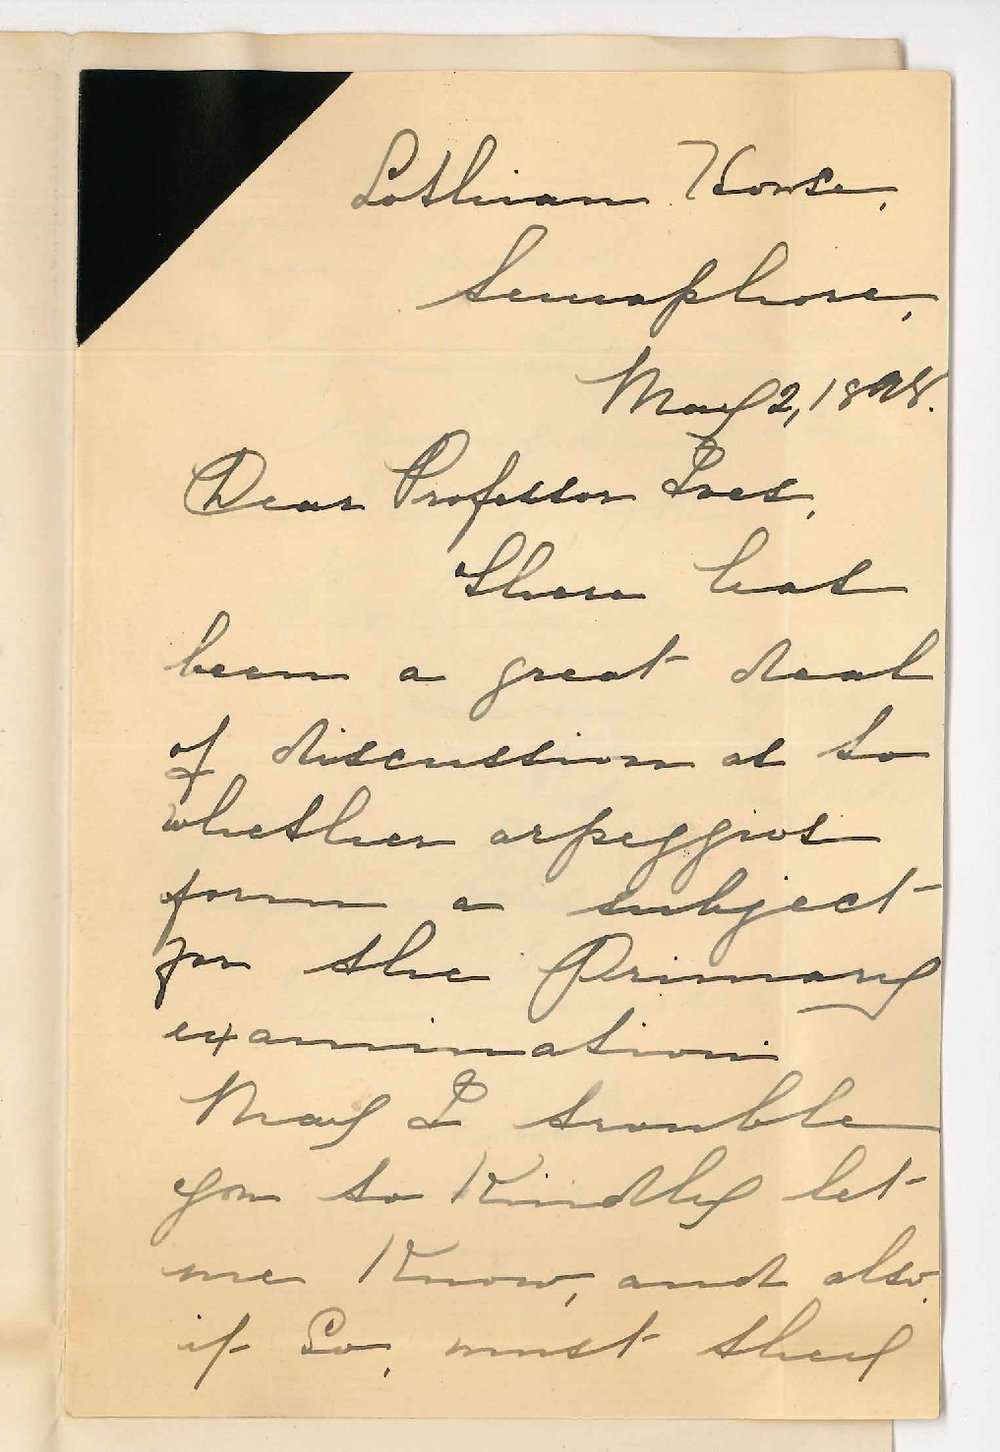 Lothian House,
Semaphore,
May 2, 1898.
Dear Professor Ives,
There has
been a great deal
of discussion as to
whether arpeggios
form a subject
for the Primary
examination.
May I trouble
you to Kindly let
me Know, and also,
if so, must they